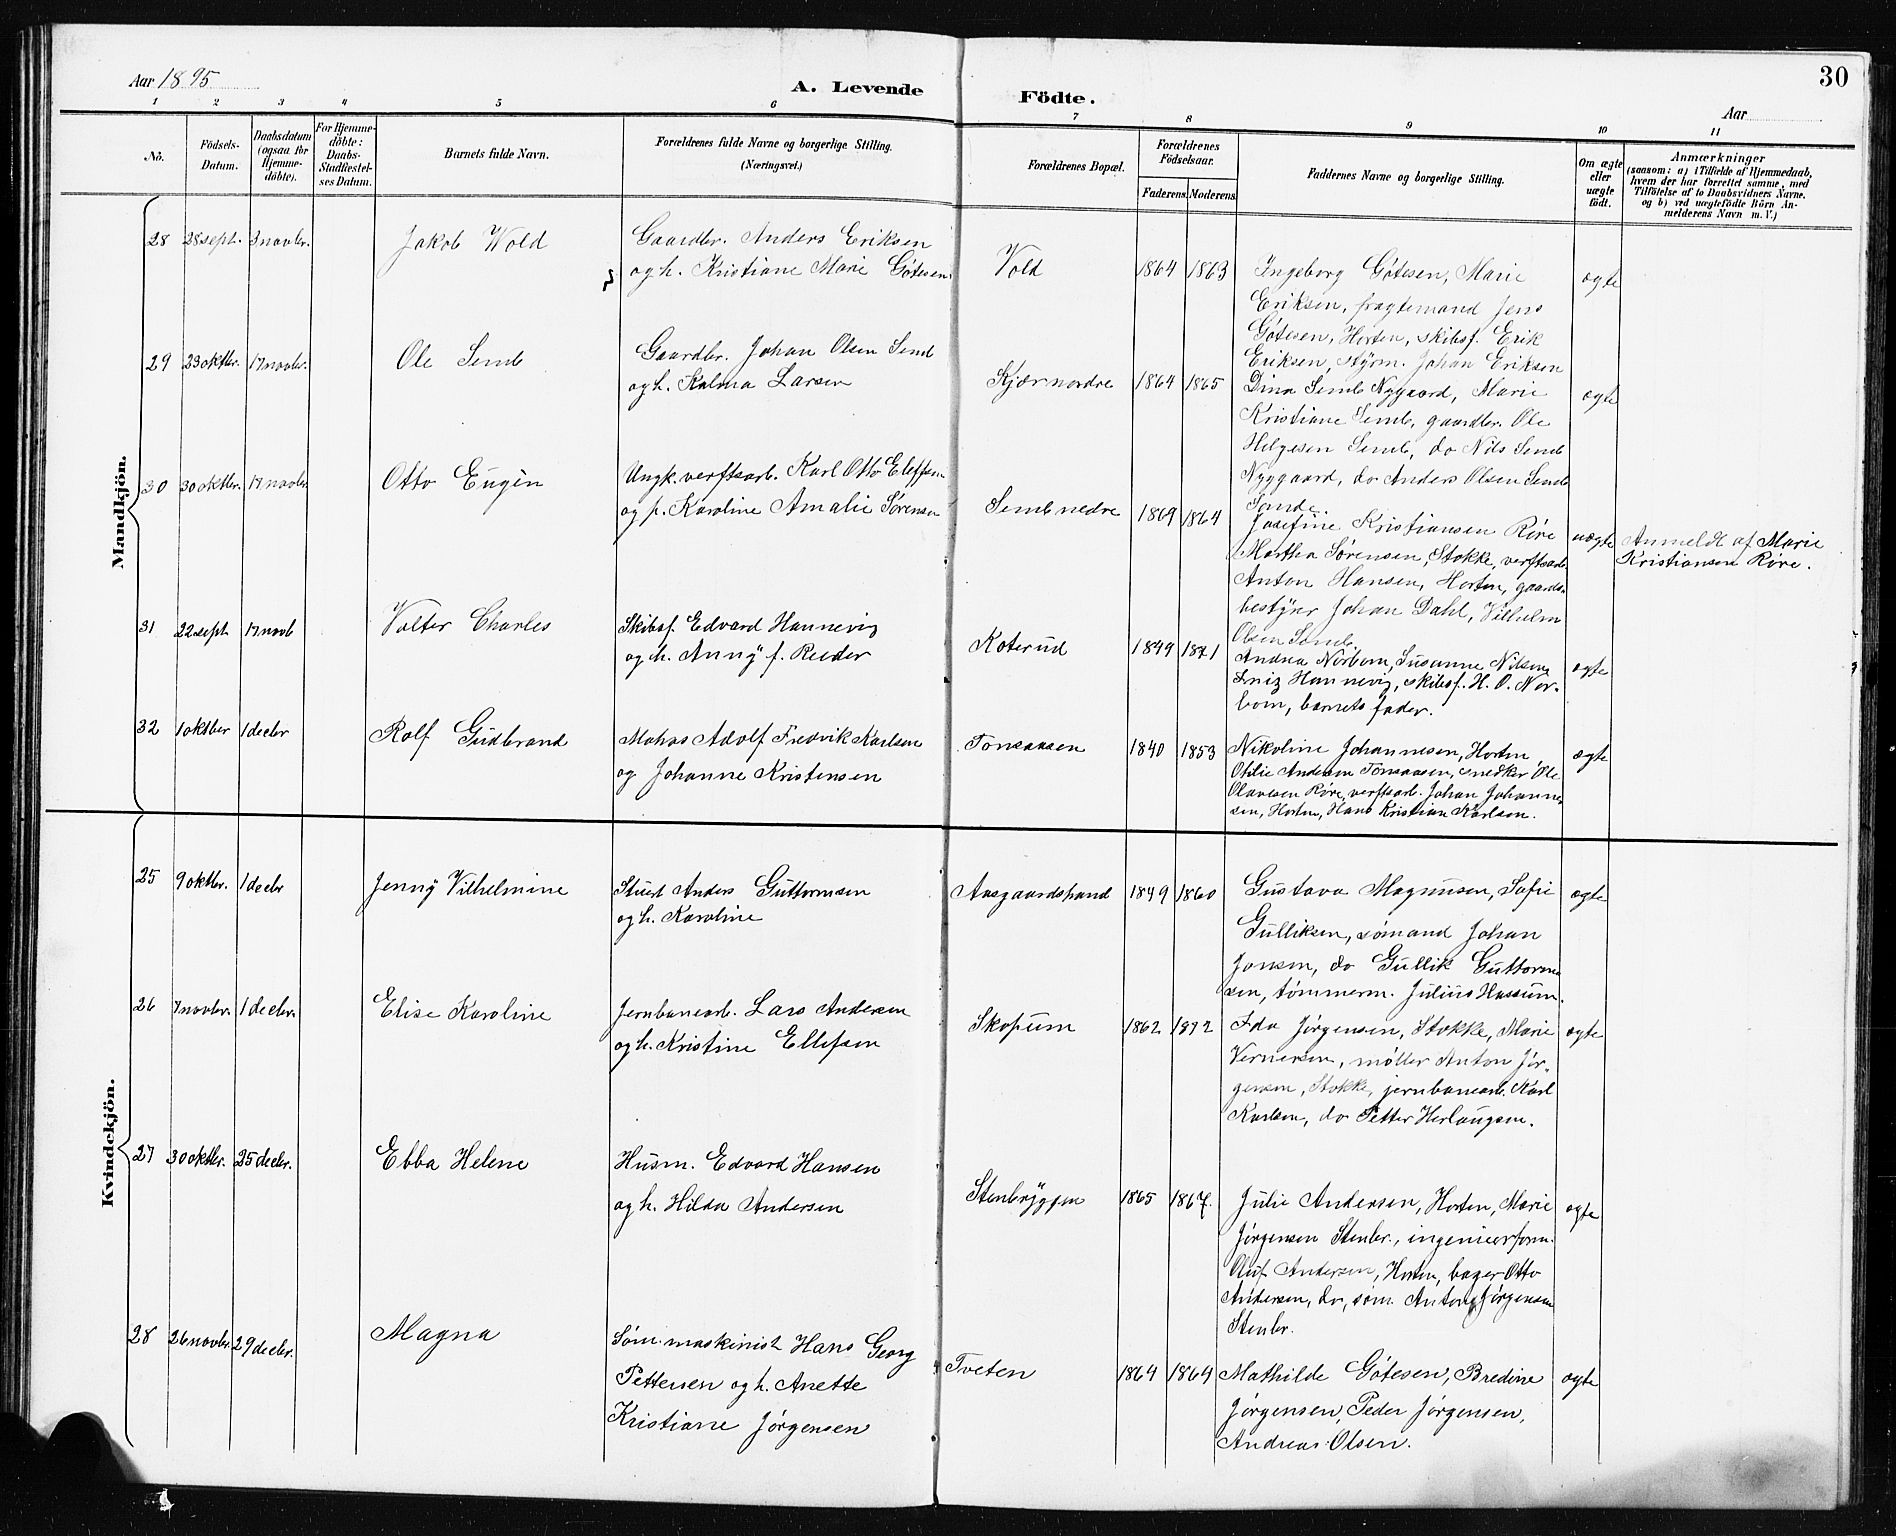 Aar 1895
A. Levende Födte.
30
Aar
1 2 3 4 5 6 7 8 9 10 11
No.
Födsels-Datum.
Daabsdatum (ogsaa for Hjemme-döbte).
For Hjemme-döbte: Daabs-Stadfæstel-ses Datum.
Barnets fulde Navn.
Forældrenes fulde Navne og borgerlige Stilling.
(Næringsvei.)
Forældrenes Bopæl.
Forældrenes Födselsaar.
Faderens. Moderens.
Faddernes Navne og borgerlige Stilling.
Om ægte eller uægte födt.
Anmærkninger
(saasom: a) i Tilfælde af Hjemmedaab,
hvem der har forrettet samme, med
Tilföielse af to Daabsvidners Navne.
og b) ved uægtefödte Börn An-
melderens Navn m. V.)
Mandkjön.
28 28 sept. 3 novbr. Jakob Wold
Gaardbr. Anders Eriksen
og h. Kristiane Marie Götesen
Vold 1864 1863
Ingeborg Götesen, Marie
Eriksen, fragtemand Jens
Götesen, Horten, skibsf. Erik
Eriksen, styrm. Johan Eriksen
ægte
29 23 oktbr. 17 novbr. Ole Semb
Gaardbr. Johan Olsen Semb
og h. Kalma Larsen
Kjær nordre 1864 1865
Dina Semb Nygaard, Marie
Kristiane Semb, gaardbr. Ole
Helgesen Semb, do Nils Semb
Nyggaard, do Anders Olsen Semb
Sande.
ægte
30 30 oktbr. 17 novbr. Otto Eugin
Ungk. verftsarb. Karl Otto Eleffsen
og p. Karoline Amalie Sörensen
Semb nedre 1869 1864
Josefine Kristiansen Röre
Martha Sörensen, Stokke, verftsarb.
Anton Hansen, Horten, gaards-
bestyrer Johan Dahl, Vilhelm
Olsen Semb.
uægte
Anmeldt af Marie
Kristiansen Röre.
31 22 sept 17 novb Valter Charles
Skibsf. Edvard Hannevig
og h. Anny f. Reeder
Koterud 1849 1871
Andrea Norbom, Susanne Nilsen,
Friz Hannevig, skibsf. H. O. Nor-
bom, barnets fader.
ægte
32 1 oktber 1 decbr Rolf Gudbrand
Mahos Adolf Fredvik Karlsen
og Johanne Kristensen
Tonsaasen 1840 1853
Nikoline Johannesen, Horten,
Othlie Andersen Tonsaasen, snedker Ole
Olavesen Röre, verftsarb. Johan Johanne-
sen, Horten, Hans Kristian Karlsen.
ægte
Kvindekjön.
25 9 oktbr. 1 decbr Jenny Vilhelmine
Stuert Anders Guttormsen
og h. Karoline
Aasgaardstrand 1849 1860
Gustava Magnusen, Sofie
Gulliksen, sömand Johan
Jonsen, do Gullik Guttorm-
sen, tömmerm. Julius Hassum.
ægte
26 7 novbr. 1 decbr. Elise Karoline
Jernbanearb. Lars Andersen
og h. Kristine Ellefsen
Skopum 1862 1872
Ida Jörgensen, Stokke, Marie
Vernersen, möller Anton Jör-
gensen, Stokke, jernbanearb. Karl
Karlsen, do Petter Herlaugsen.
ægte
27 30 oktbr. 25 decbr. Ebba Helene
Husm. Edvard Hansen
og h. Hilda Andersen
Stenbryggen 1865 1867.
Julie Andersen, Horten, Marie
Jörgensen Stenbr., ingeniörform.
Oluf Andersen, Horten, bager Otto
Andersen, do, söm. Anton Jörgensen
Stenbr.
ægte
28 26 novbr. 29 decbr. Magna
Söm. maskinist Hans Georg
Pettersen og h. Anette
Kristiane Jörgensen
Tveten 1864 1864
Mathilde Götesen, Bredine
Jörgensen, Peder Jörgensen,
Andreas Olsen.
ægte